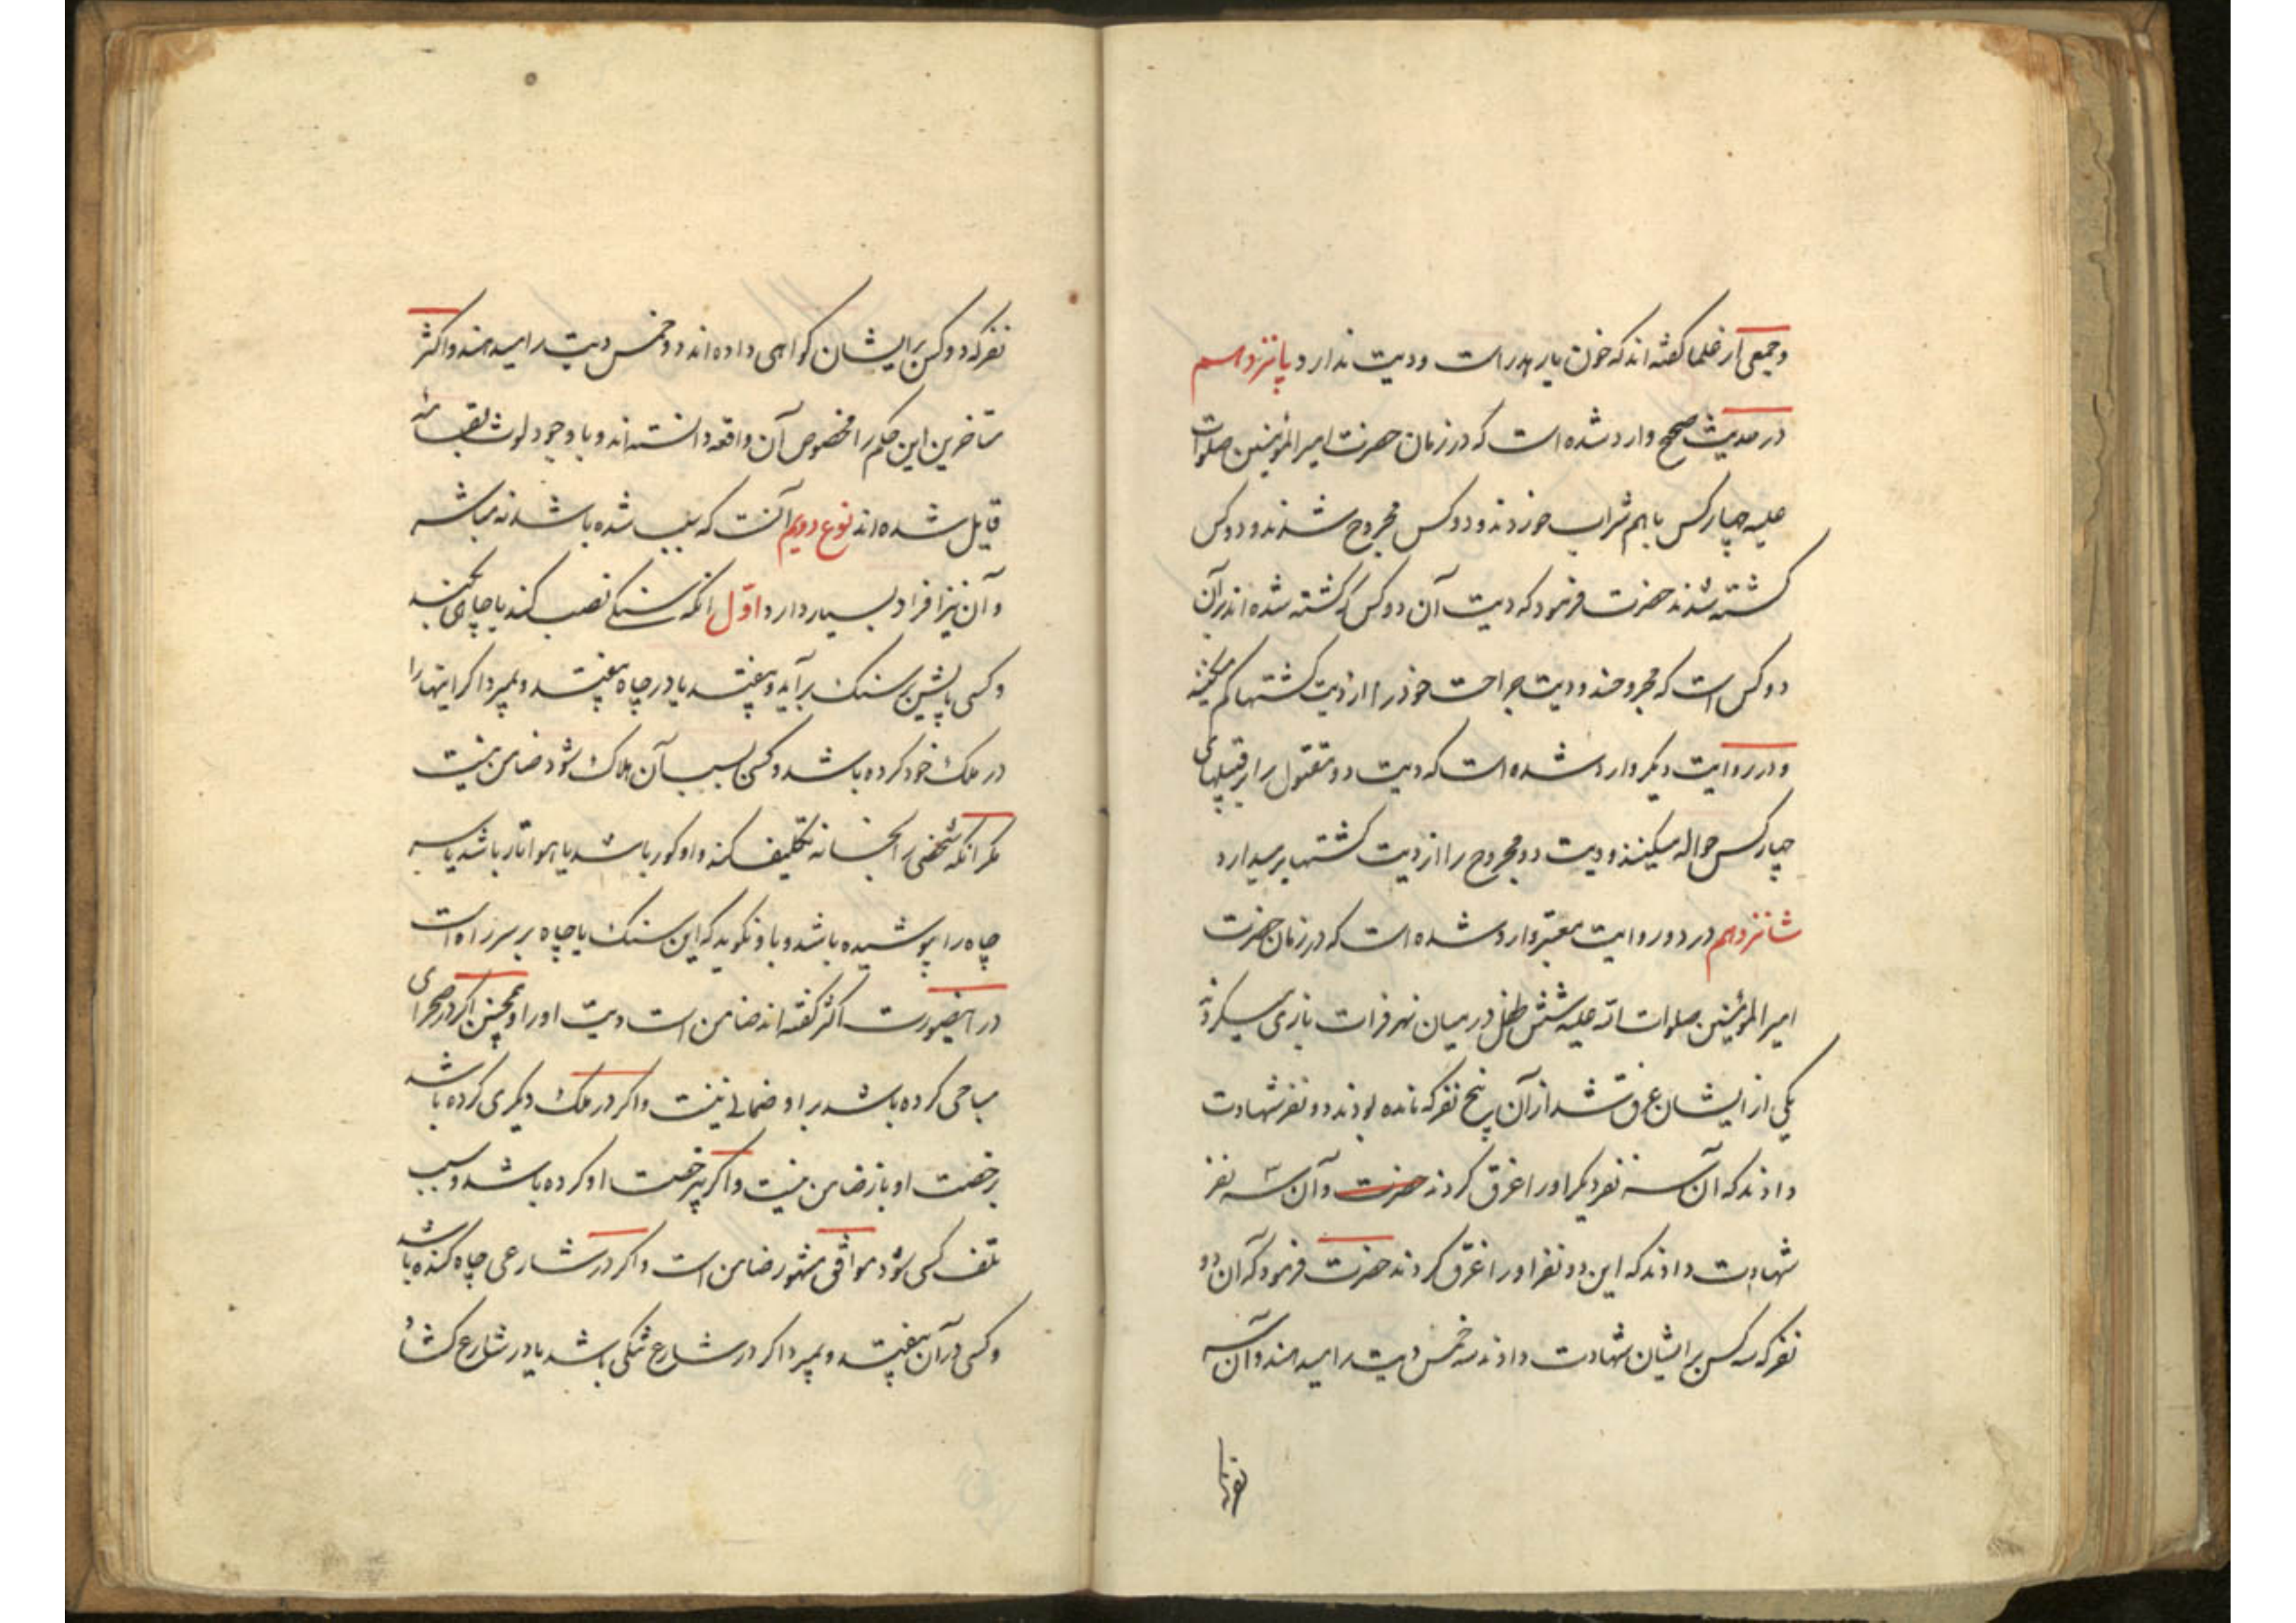 و جمعی از علما کفته اند که خون یار هدر است و دیت ندارد پانزدهم
در حدیث صحیح وارد شده است که در زمان حضرت امیرالمؤمنین صلوات
علیه چهار کس با هم شراب خوردند و دو کس مجروح شدند و دو کس
کشته شدند حضرت فرمود که دیت آن دو کس که کشته شده اند بر آن
دو کس است که مجروحند و دیت جراحت خود را از دیت کشتها کم میکنند
و در روایت دیکر وارد شده است که دیت دو مقتول را بر قبیلهای
چهار کس حواله میکنند و دیت دو مجروح را از دیت کشتها بر میدارد
شانزدهم در دو روایت معتبر وارد شده است که در زمان حضرت
امیرالمؤمنین صلوات الله علیه شش طفل در میان نهر فرات بازی میکردند
یکی از ایشان غرق شد از آن پنج نفر که مانده بودند دو نفر شهادت
دادند که آن سه نفر دیکر او را غرق کردند حضرت و آن سه نفر
شهادت دادند که این دو نفر او را غرق کردند حضرت فرمود که آن دو
نفر که سه کس بر ایشان شهادت دادند سه خمس دیت را میدهند و آن سه
نفر که دو کس بر ایشان کواهی داده اند دو خمس دیت را میدهند و اکثر
متاخرین این حکم را مخصوص آن واقعه دانسته اند و با وجود لوث بقسامه
قایل شده اند نوع دویم آنست که سبب شده باشد نه مباشر
و آن نیز افراد بسیار دارد اوّل انکه سنکی نصب کند یا چاهی بکند
و کسی پایش بر سنک برآید و بیفتد یا در چاه بیفتد و بمیرد اکر اینها را
در ملک خود کرده باشد و کسی بسبب آن هلاک شود ضامن نیست
مکر انکه شخصی را بخانه تکلیف کند و او کور باشد یا هوا تار باشد یا سر
چاه را پوشیده باشد و باو نکوید که این سنک یا چاه بر سر راه است
در اینصورت اکثر کفته اند ضامن است دیت او را و همچنین اکر در صحرای
مباحی کرده باشد بر او ضمانی نیست و اکر در ملک دیکری کرده باشد
برخصت او باز ضامن نیست و اکر بیرخصت او کرده باشد و سبب
تلف کسی شود موافق مشهور ضامن است و اکر در شارعی چاه کنده باشد
و کسی در آن بیفتد و بمیرد اکر در شارع تنکی باشد یا در شارع کشاد